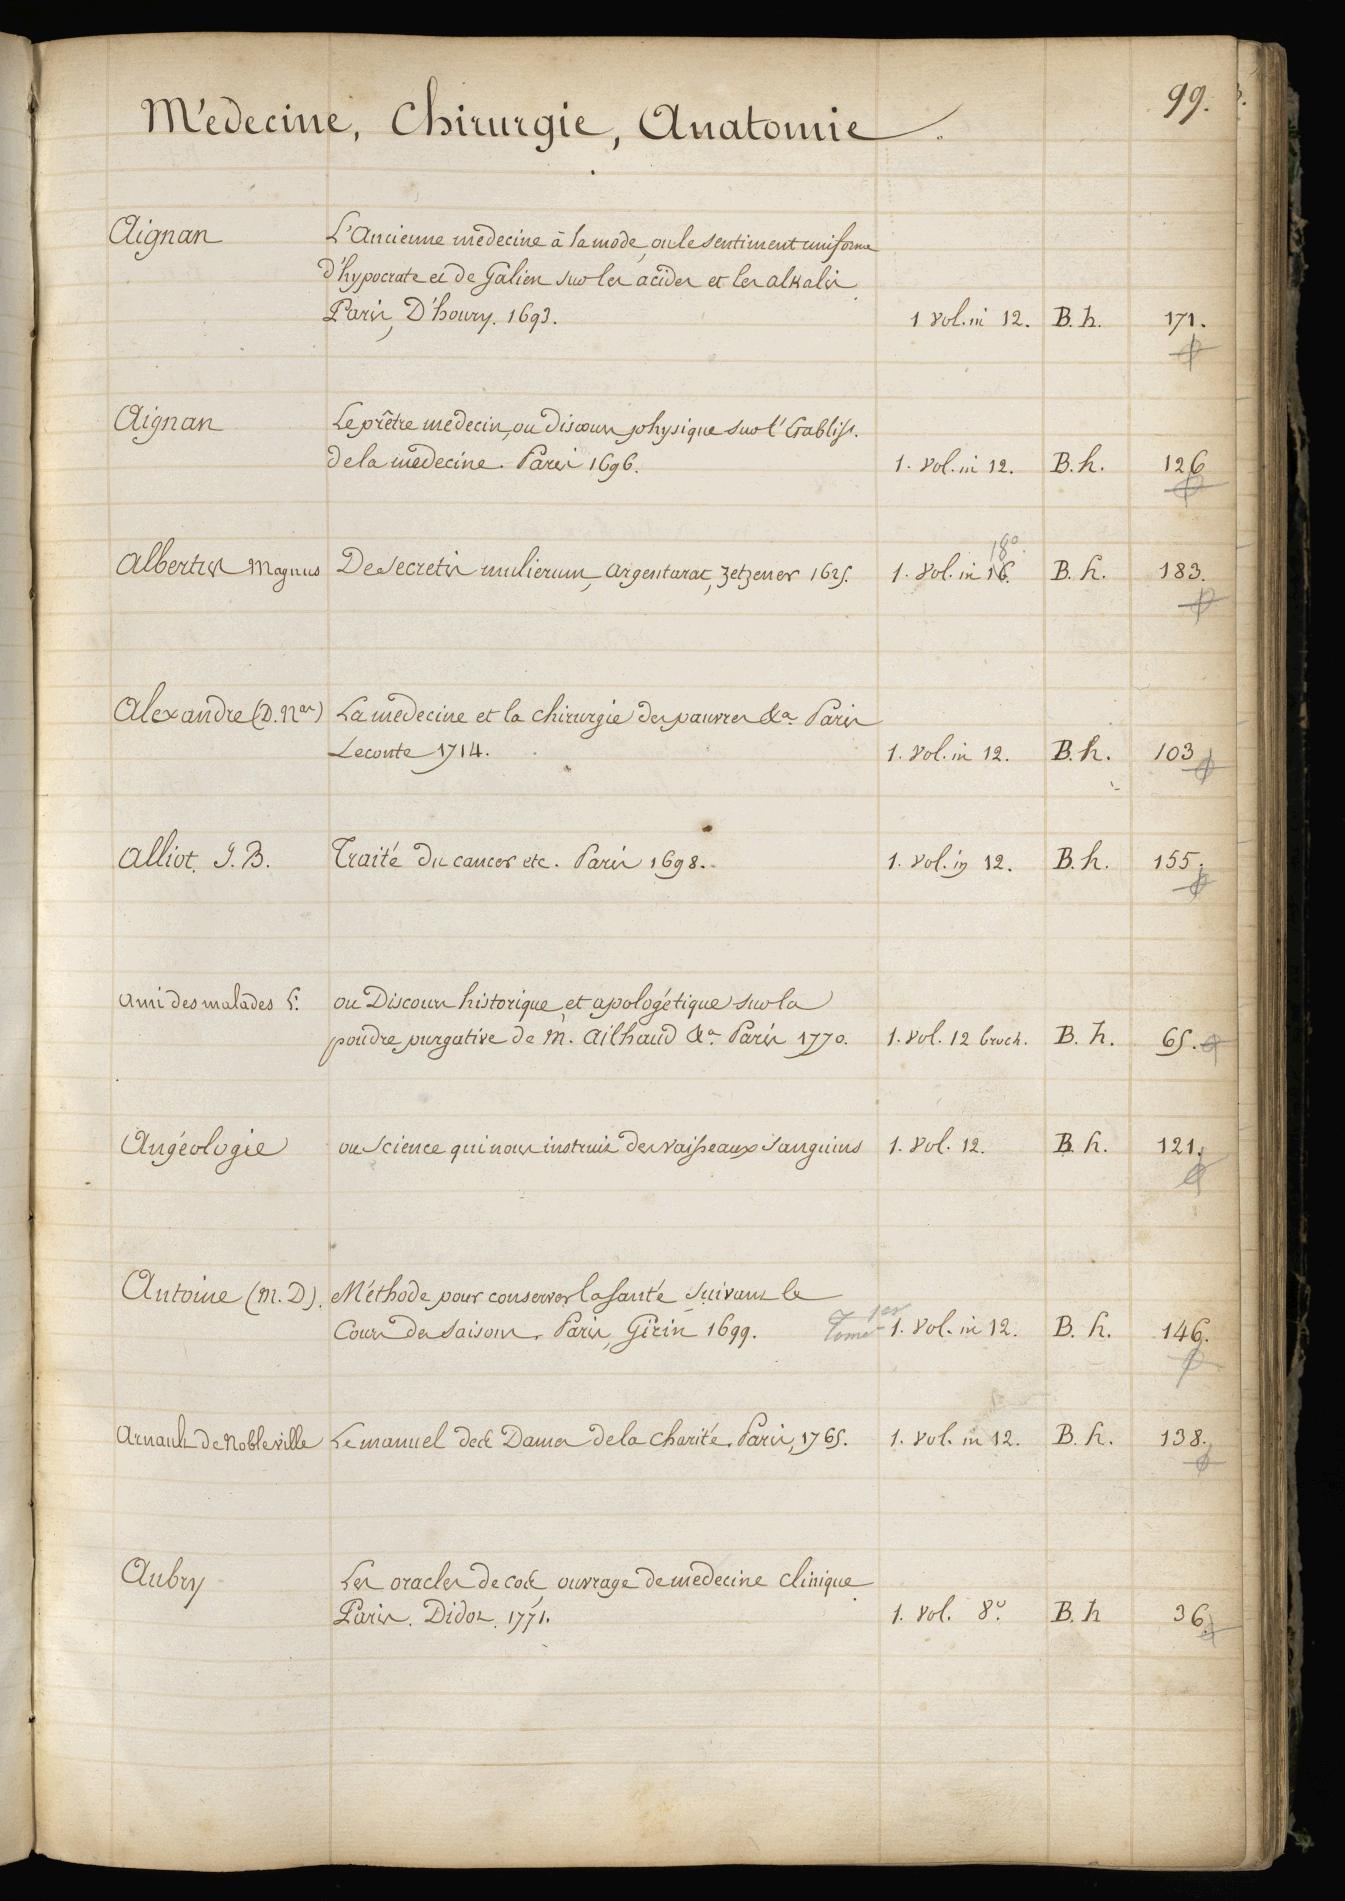 99.
Médecine, Chirurgie, Anatomie.
Aignan L'Ancienne médecine à la mode, ou le sentiment uniforme
d'hypocrate et de Galien sur les acides et les alkalis
Paris, D'houry. 1693. 1 vol. in 12. B. h. 171.
Aignan Le prêtre médecin, ou discours physique sur l'Etabliss.
de la médecine. Paris 1696. 1. vol. in 12. B. h. 126
18º.
Albertus Magnus De secretis mulierum, argentorat, Zetzener 1625. 1. vol. in 16. B. h. 183.
Alexandre (D. Nas) La médecine et la chirurgie des pauvres &a. Paris
Leconte 1714. 1. vol. in 12. B. h. 103
Alliot. J. B. Traité du cancer etc. Paris 1698. 1. vol. in 12. B. h. 155.
Ami des malades L'. ou Discours historique et apologétique sur la
poudre purgative de M. Ailhaud &a. Paris 1770. 1. vol. 12 broch. B. h. 65.
Angéologie ou science qui nous instruit des vaisseaux sanguins 1. vol. 12. B. h. 121.
Antoine (M. D). Méthode pour conserver la santé suivant le
Cours des saisons. Paris, Girin 1699. Tome 1er 1. vol. in 12. B. h. 146.
Arnault de Nobleville Le manuel des Dames de la charité. Paris, 1765. 1. vol. in 12. B. h. 138.
Aubry Les oracles de cos ouvrage de médecine clinique
Paris. Didot. 1771. 1. vol. 8º. B. h 36.